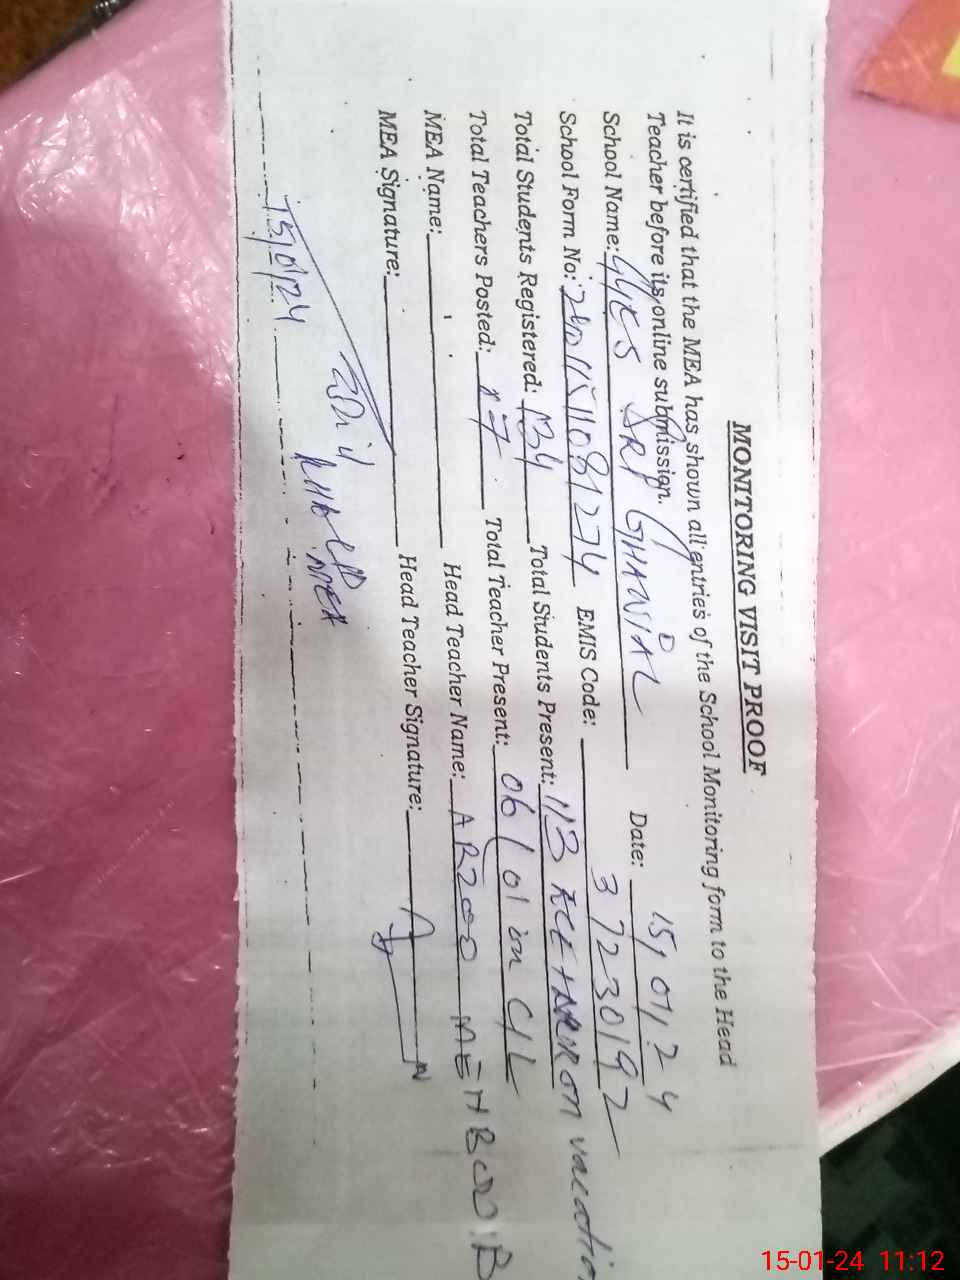 MONITORING VISIT PROOF
It is certified that the MEA has shown all entries of the School Monitoring form to the Head
Teacher before its online submission.
School Name: GHAWIAL Date: 15/01/24
School Form No: EMIS Code: 37230192
Total Students Registered: 134 Total Students Present: 113 on vacation
Total Teachers Posted: 17 Total Teacher Present: 06/01 in C/L
MEA Name: Head Teacher Name: ARZOO MEHBOOB
MEA Signature: Head Teacher Signature:
MEA
15/01/24
15-01-24 11:12